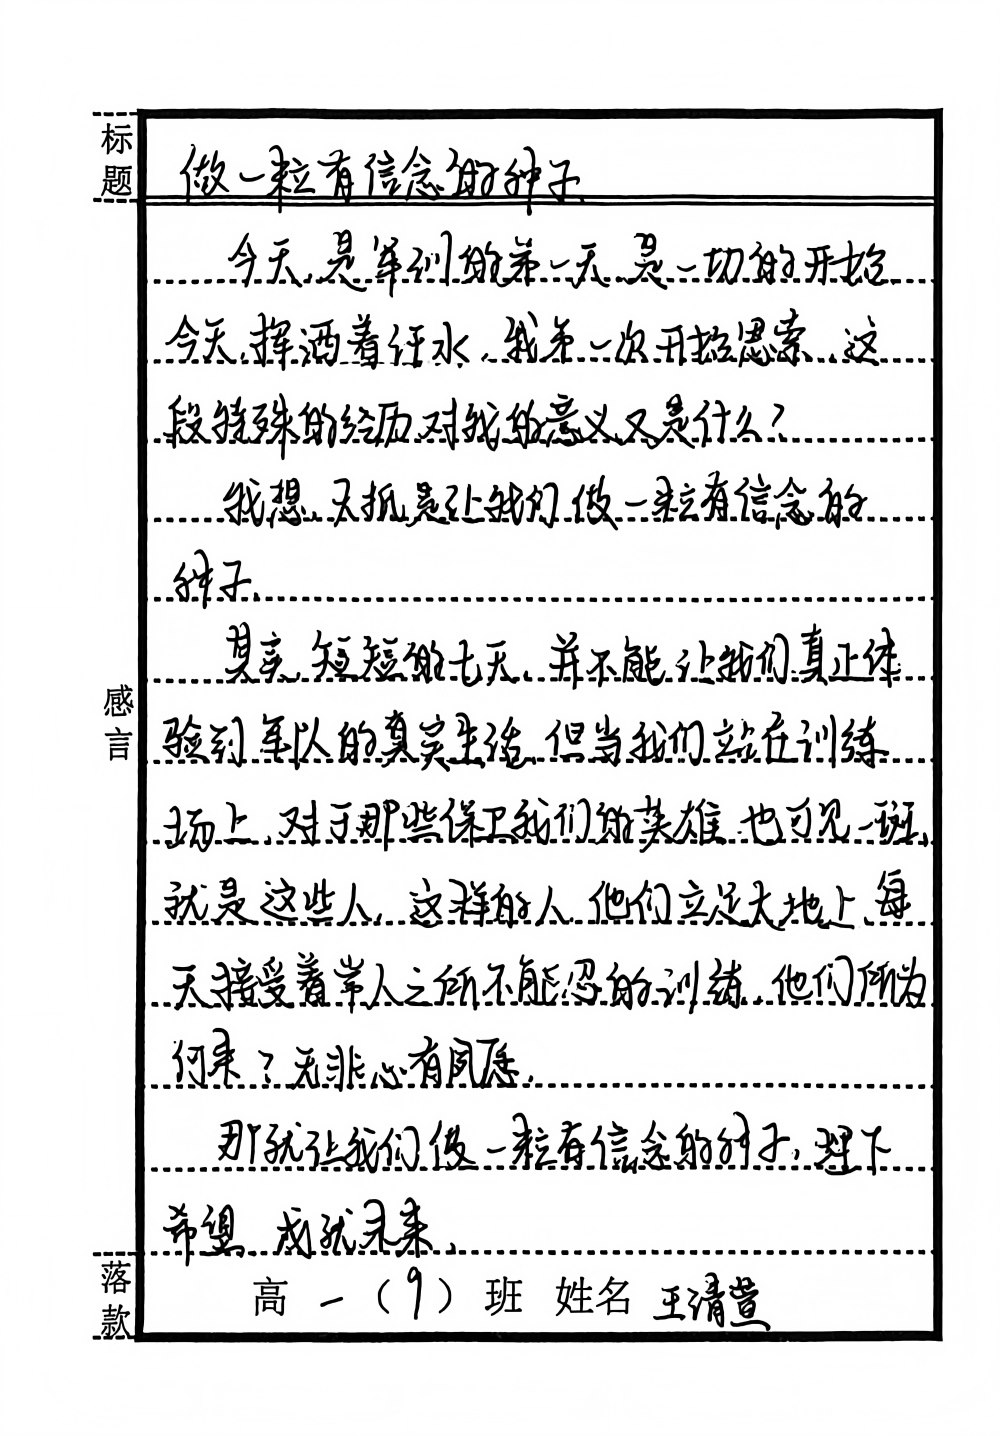 标题
做一粒有信念的种子
今天,是军训的第一天,是一切的开始.
今天,挥洒着汗水,我第一次开始思索,这
段特殊的经历,对我的意义又是什么?
我想,无抓是让我们做一粒有信念的
种子.
其实,短短的七天,并不能让我们真正体
验到军队的真实生活,但当我们站在训练
场上,对于那些保卫我们的英雄,也可见一斑,
就是这些人,这样的人,他们立足大地上,每
天接受着常人之所不能忍的训练,他们所为
何来?无非心有夙愿.
那就让我们做一粒有信念的种子,埋下
希望,成就未来.
感言
落款
高一(9)班 姓名 王清萱